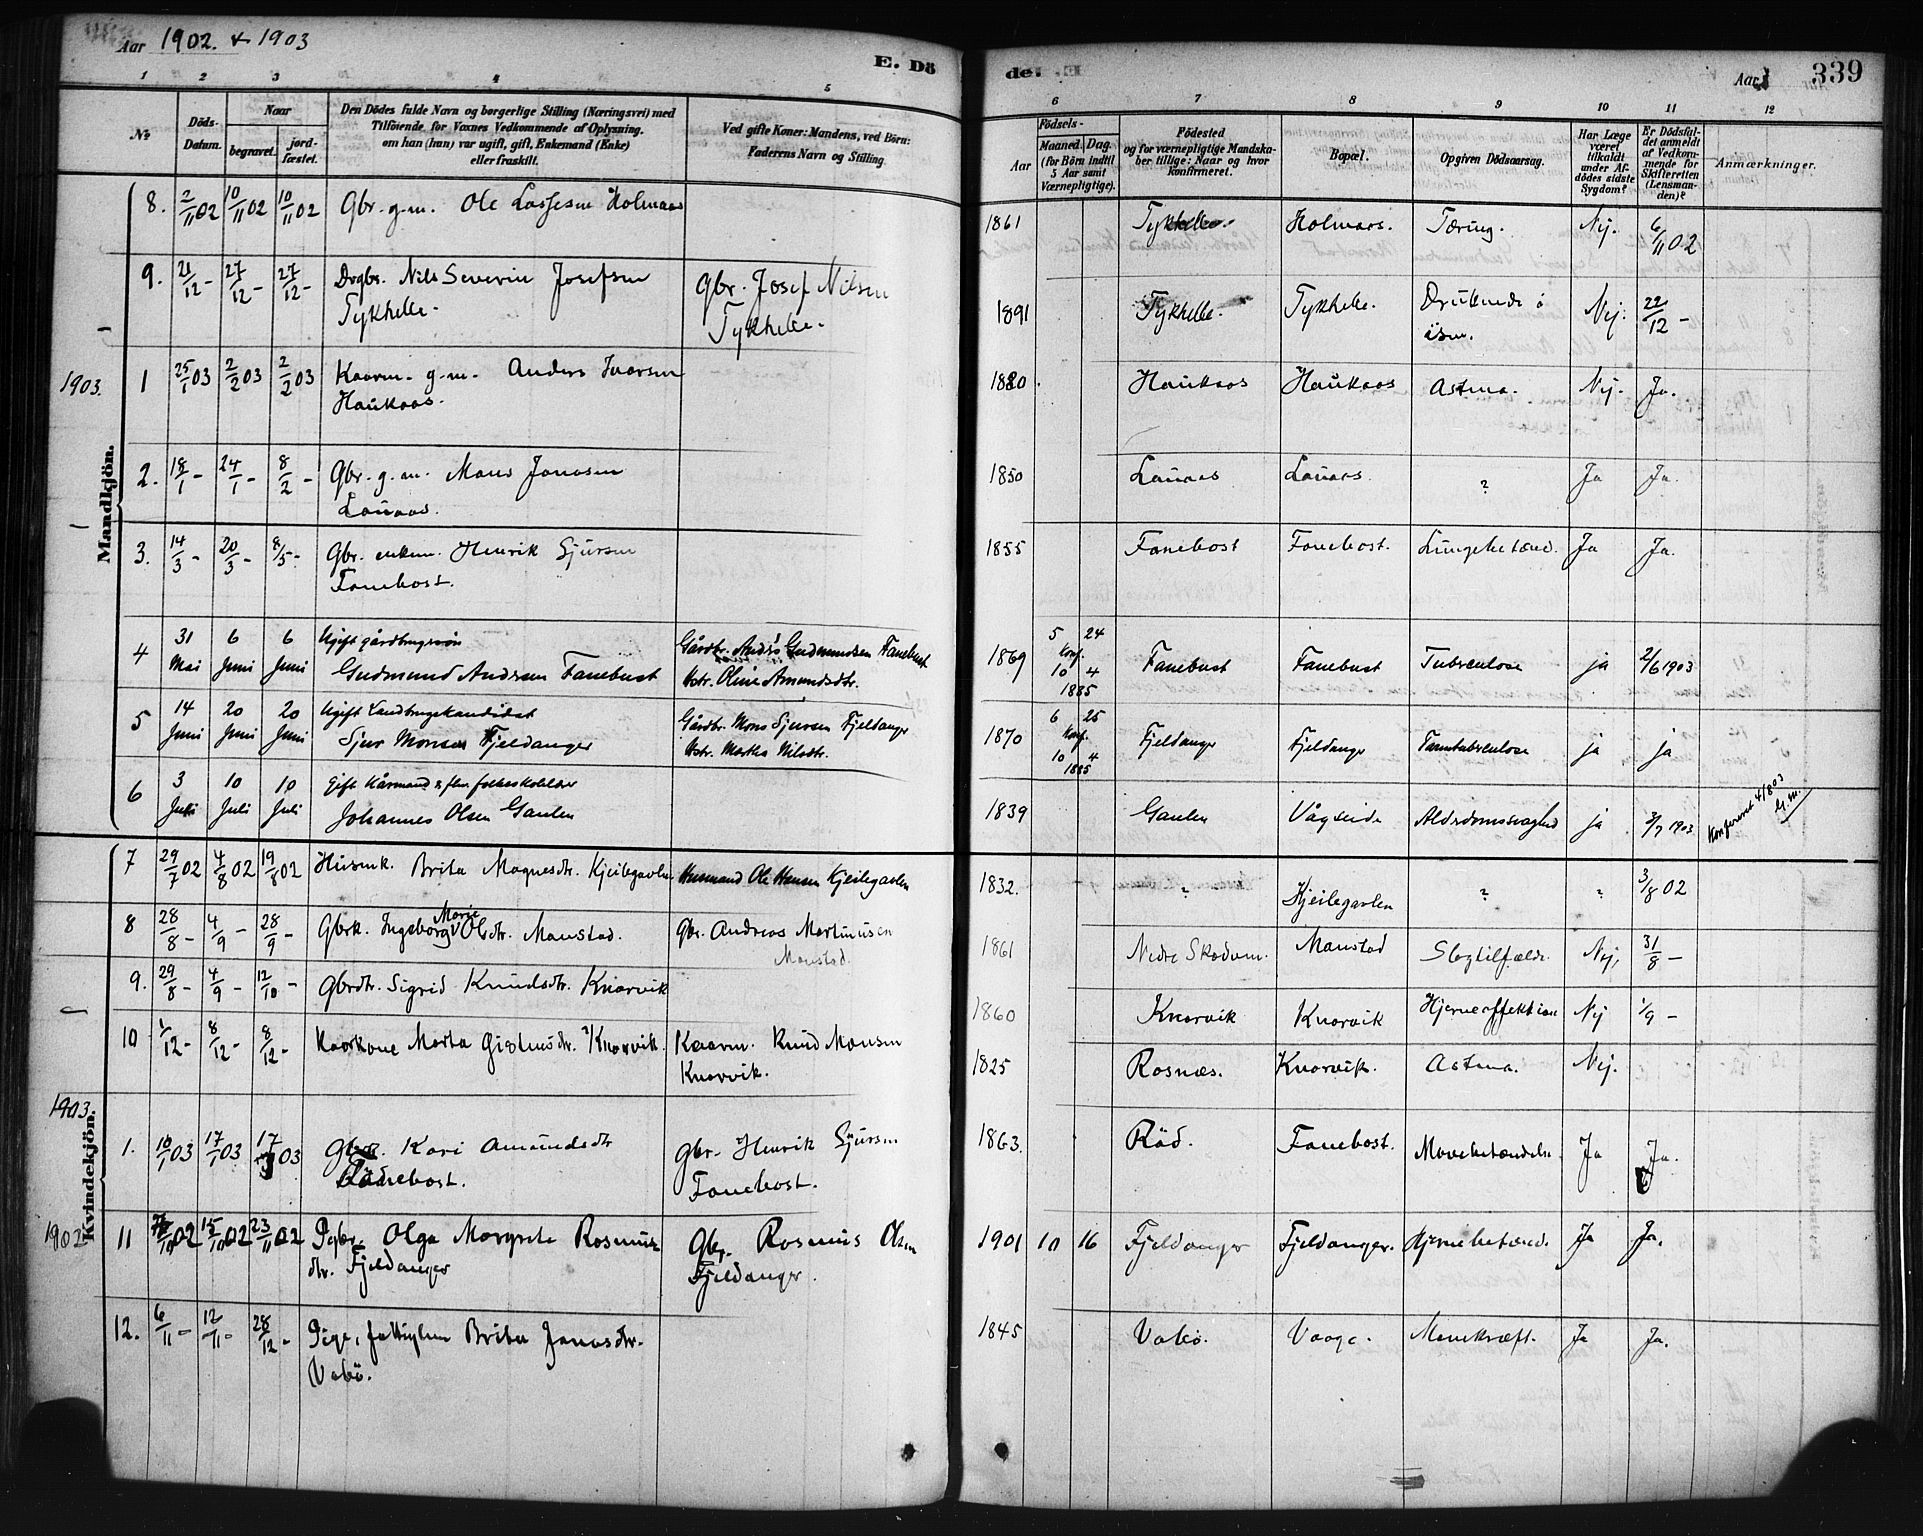 Aar 1902. & 1903
E. Dö
de.
Aar
339
1 2 3 4 5 6 7 8 9 10 11 12
No
Döds-Datum.
Naar
begravet.
jord-fæstet.
Den Dödes fulde Navn og borgerlige Stilling (Næringsvei) med
Tilföiende for Voxnes Vedkommende af Oplysning.
om han (hun) var ugift, gift, Enkemand (Enke)
eller fraskilt.
Ved gifte Koner: Mandens, ved Börn:
Faderens Navn og Stilling.
Födsels-
Aar
Maaned. Dag.
(for Börn indtil
5 Aar samt
Værnepligtige).
Födested
og for værnepligtige Mandska-
ber tillige: Naar og hvor
konfirmeret.
Bopæl.
Opgiven Dödsaarsag.
Har Læge
været
tilkaldt
under Af-
dödes sidste
Sygdom?
Er Dödsfal-
det anmeldt
af Vedkom-
mende for
Skifteretten
(Lensman-
den)?
Anmærkninger.
Mandkjön.
8. 2/11 02 10/11 02 10/11 02 Gbr. g.m. Ole Lassesen Holmaas 1861 Tykhelle. Holmaas. Tæring. Nej. 6/11 02
9. 21/12 - 27/12 - 27/12 - Drgbr. Nils Severin Josefsen Gbr. Josef Nilsen 1891 Tykhelle. Tykhelle. Druknede i Nej. 22/12 -
Tykhelle. Tykhelle. isen.
1903. 1 25/1 03 2/2 03 2/2 03 Kaarm. g.m. Anders Ivarsen 1820. Haukaas Haukaas Astma. Nej. Ja.
Haukaas.
2. 18/1 - 24/1 - 8/2 - Gbr. g.m. Mons Jonasen 1850 Lauaas Lauaas. ? Ja Ja.
Lauaas.
3. 14/3 - 20/3 - 8/5 - Gbr. enkem. Henrik Sjursen 1855 Fanebost Fanebost. Lungebetænd. Ja Ja.
Fanebost.
4 31 Mai 6 Juni 6 Juni Ugift gårdbrugersön Gårdbr. Anders Gudmundsen Fanebust 1869 5 24 Konf. 10 4 1885 Fanebust Fanebust Tuberculose ja 2/6 1903
Gudmund Andersen Fanebust Hstr. Oline Amundsdtr.
5 14 Juni 20 Juni 20 Juni Ugift Landbrugskandidat Gårdbr. Mons Sjursen Fjeldanger 1870 6 25 Konf. 10 4 1885 Fjeldanger Fjeldanger Tarmtuberculose ja ja
Sjur Monsen Fjeldanger Hstr. Martha Nilsdtr.
6 3 Juli 10 Juli 10 Juli Gift Kårmand & fhv. folkeskolelærer 1839 Gaulen Vågseide Alderdomssvaghed ja 3/7 1903 Konfereret 4/8 03
Johannes Olsen Gaulen
Kvindekjön.
7 29/7 02 4/8 02 19/8 02 Husmk. Brita Magnesdtr. Kjeilegavlen Husmand Ole Hansen Kjeilegavlen 1832. ? Kjeilegavlen ? ? 3/8 02
8 28/8 - 4/9 - 28/9 - Gbrk. Ingeborg Marie Olsdtr. Monstad. Gbr. Andreas Martinusen Monstad. 1861 Nedre Skodvin. Monstad Slagtilfælde. Nej, 31/8 -
9. 29/8 - 4/9 - 12/10 - Gbrdtr. Sigrid Knudsdtr. Knarvik 1860 Knarvik Knarvik Hjerneaffektion Nej 1/9 -
10 1/12 - 8/12 - 8/12 - Kaarkone Marta Knarvik. Kaarm. Knud Monsen 1825 Rosnæs. Knarvik. Astma. Nej.
Knarvik.
1903. 1. 10/1 03 17/1 03 17/3 03 Kari Amundsdtr Gbr. Henrik Sjursen 1863. Räd. Fanebost. Mavebetændelse. Ja Ja.
Fanebost.
1902 11 7/10 02 15/10 02 23/11 02 Pgbr. Olga Margrete Rasmus Gbr. Rasmus Olsen 1901 10 16 Fjeldanger Fjeldanger. Hjernebetænd. Ja Ja.
dtr. Fjeldanger Fjeldanger.
12. 6/11 - 12/11 - 28/12 - Pige, fattiglem Brita Jonasdtr. 1845 Vabö. Vaage. Mavekræft. Ja Ja.
Vabö.